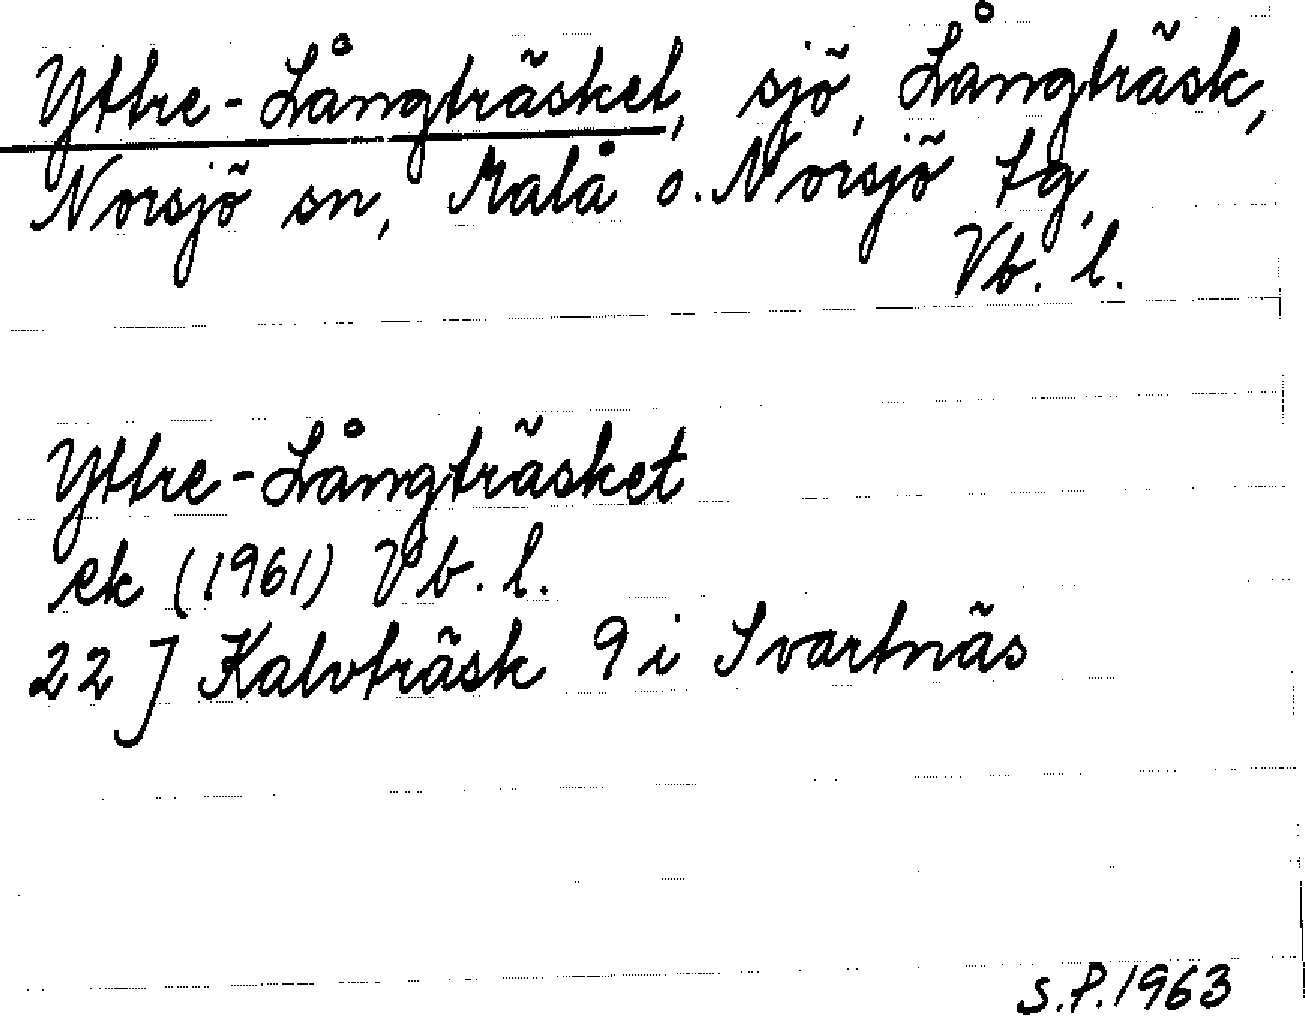 Yttre-Långträsket, sjö, Långträsk,
Norsjö sn, Malå o. Norsjö tg,
Vb. l.
Yttre-Långträsket
ek (1961) Vb. l.
22 J Kalvträsk 9 i Svartnäs
S.P. 1963